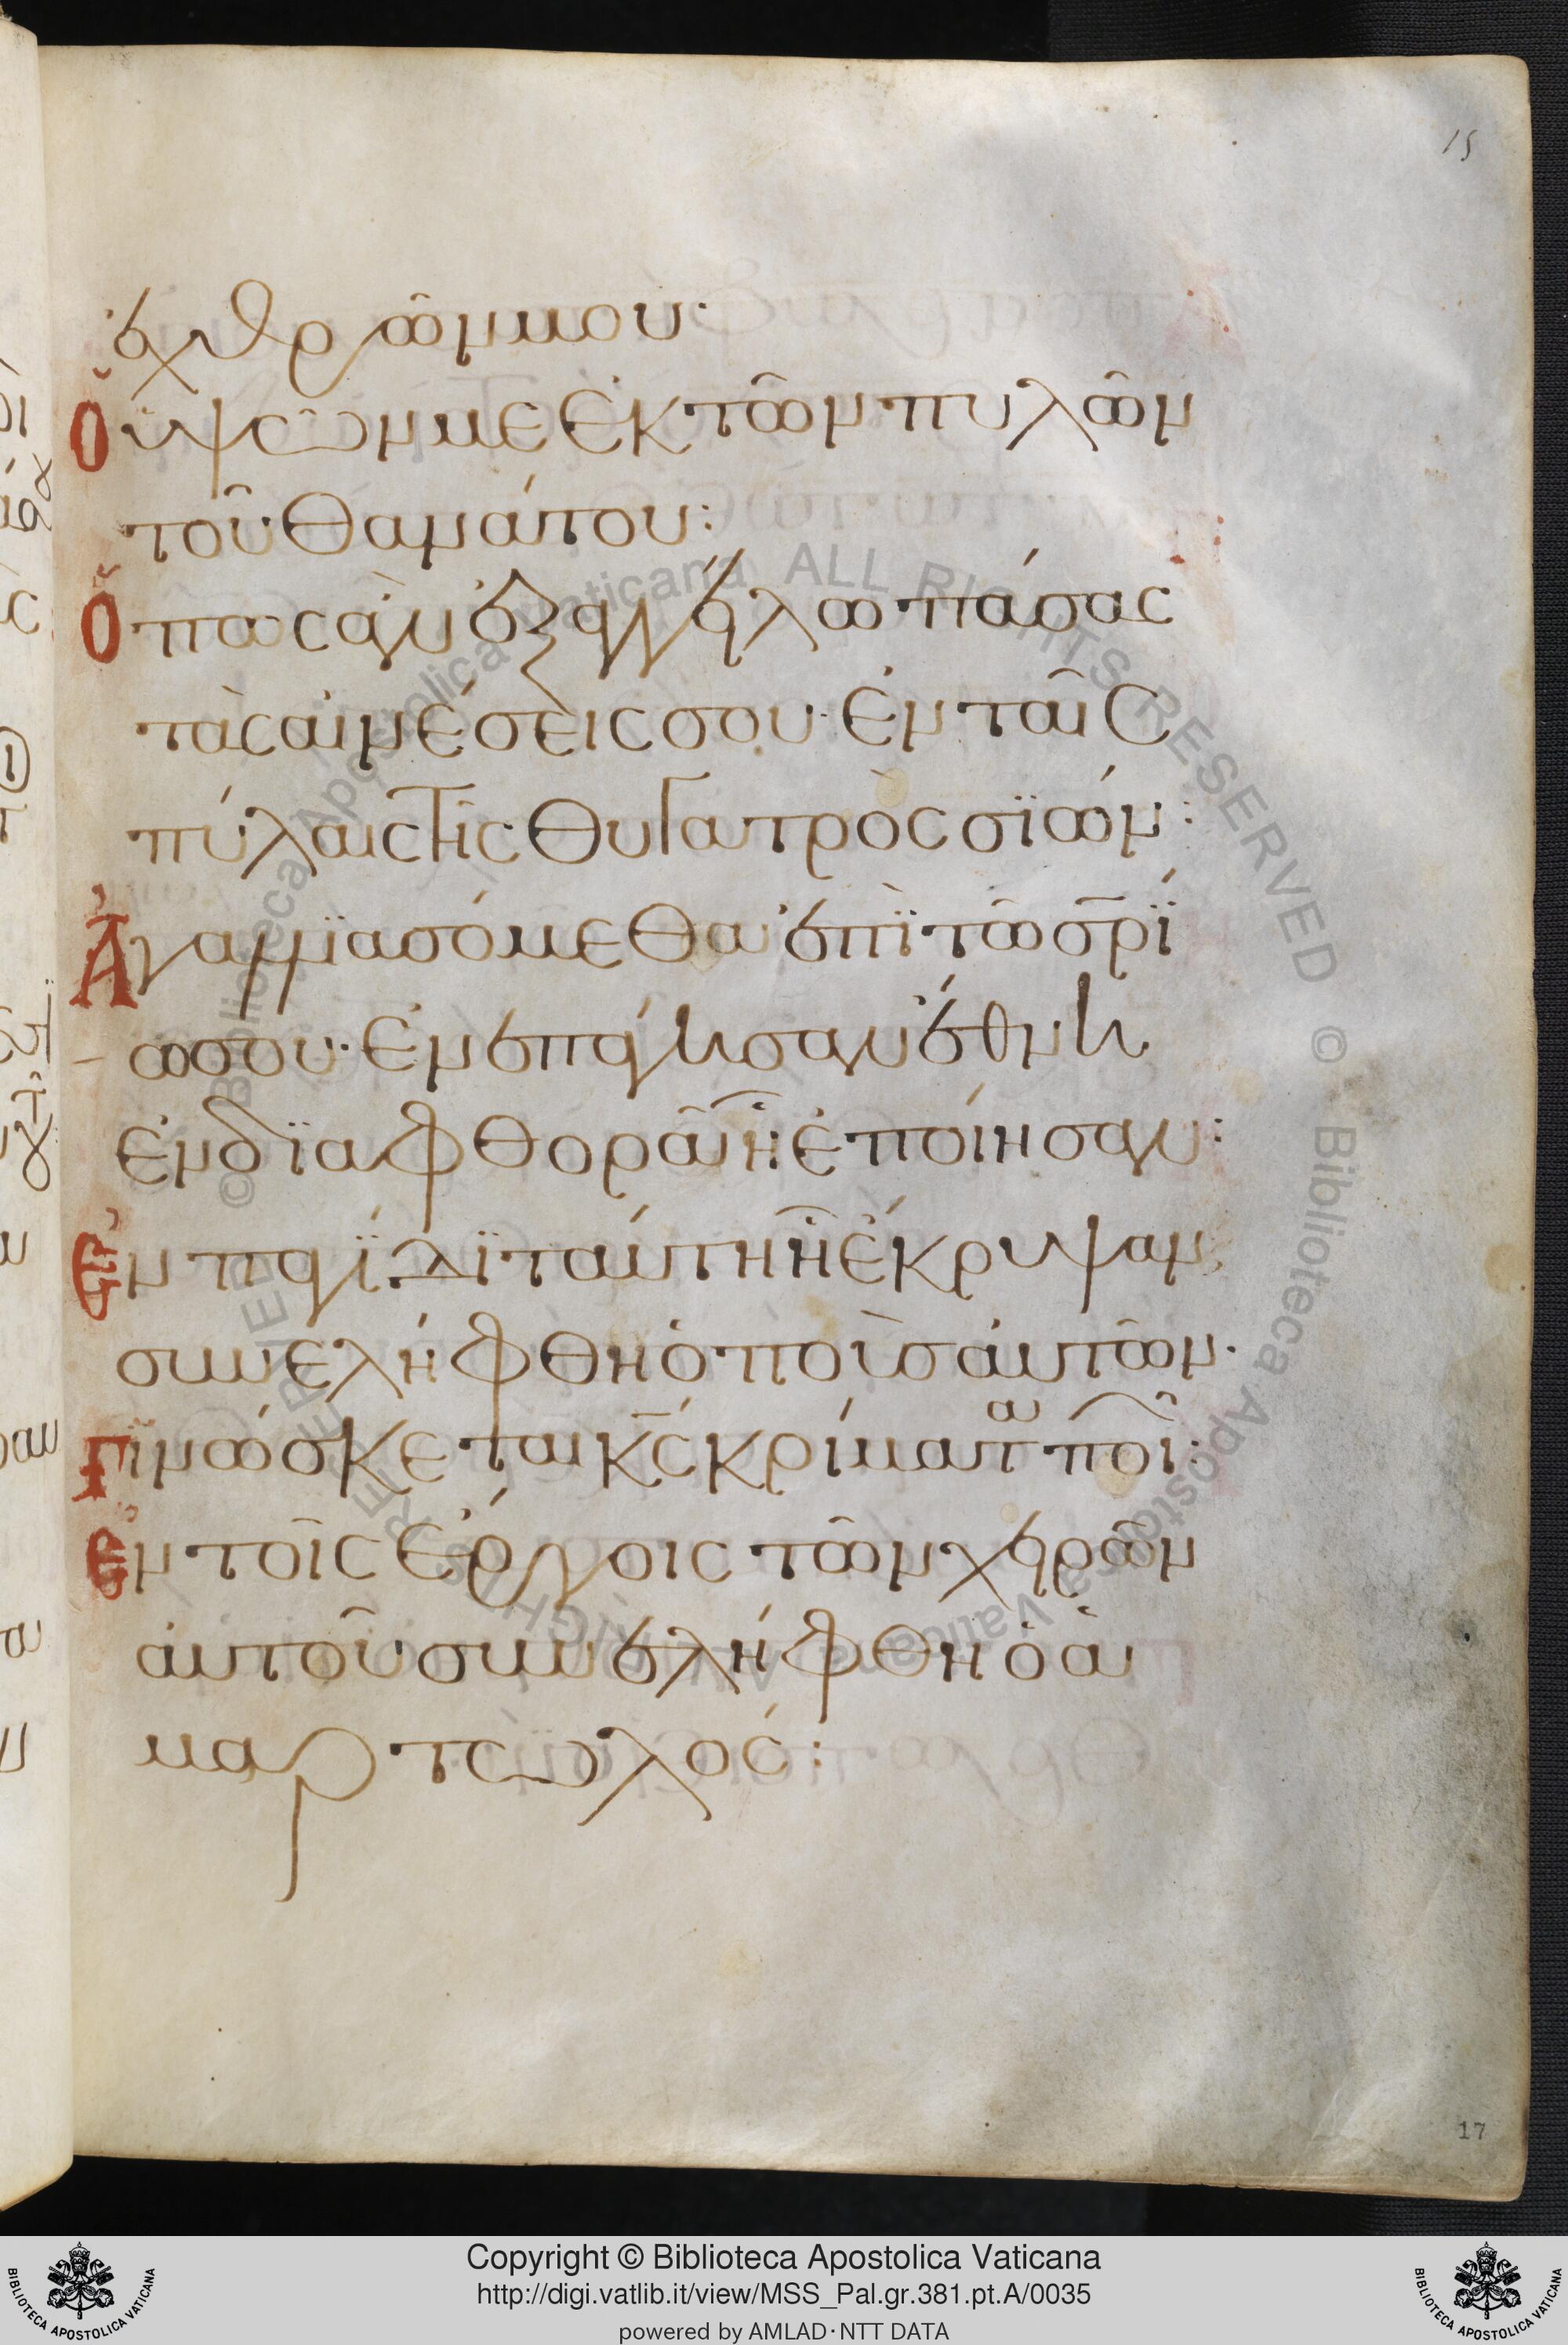 15
ἐχθρῶν μου·
Ὁ ὑψῶν με ἐκ τῶν πυλῶν
τοῦ θανάτου:
Ὅπως ἂν ἐξαγγείλω πάσας
τὰς αἰνέσεις σου· ἐν ταῖς
πύλαις τῆς θυγατρὸς σϊών:
Ἀγαλλϊασόμεθα ἐπῒ τῶ σ̅ρ̅ΐ
ω σου· ἐνεπάγησαν ἔθνη
ἐν δϊαφθορᾶ ἧ ἐποίησαν:
Ἐν παγΐδϊ ταύτη ἧ ἔκρυψαν,
συνελήφθη ὁ ποῦς ἀυτῶν·
Γϊνώσκεται κ̅ς̅ κρίματα ποιῶν:
Ἐν τοῖς ἔργοις τῶν χειρῶν
ἀυτοῦ συνελήφθη ὁ ἁ
μαρτωλός:
17
Copyright © Biblioteca Apostolica Vaticana
http://digi.vatlib.it/view/MSS_Pal.gr.381.pt.A/0035
powered by AMLAD·NTT DATA
BIBLIOTECA APOSTOLICA VATICANA
BIBLIOTECA APOSTOLICA VATICANA